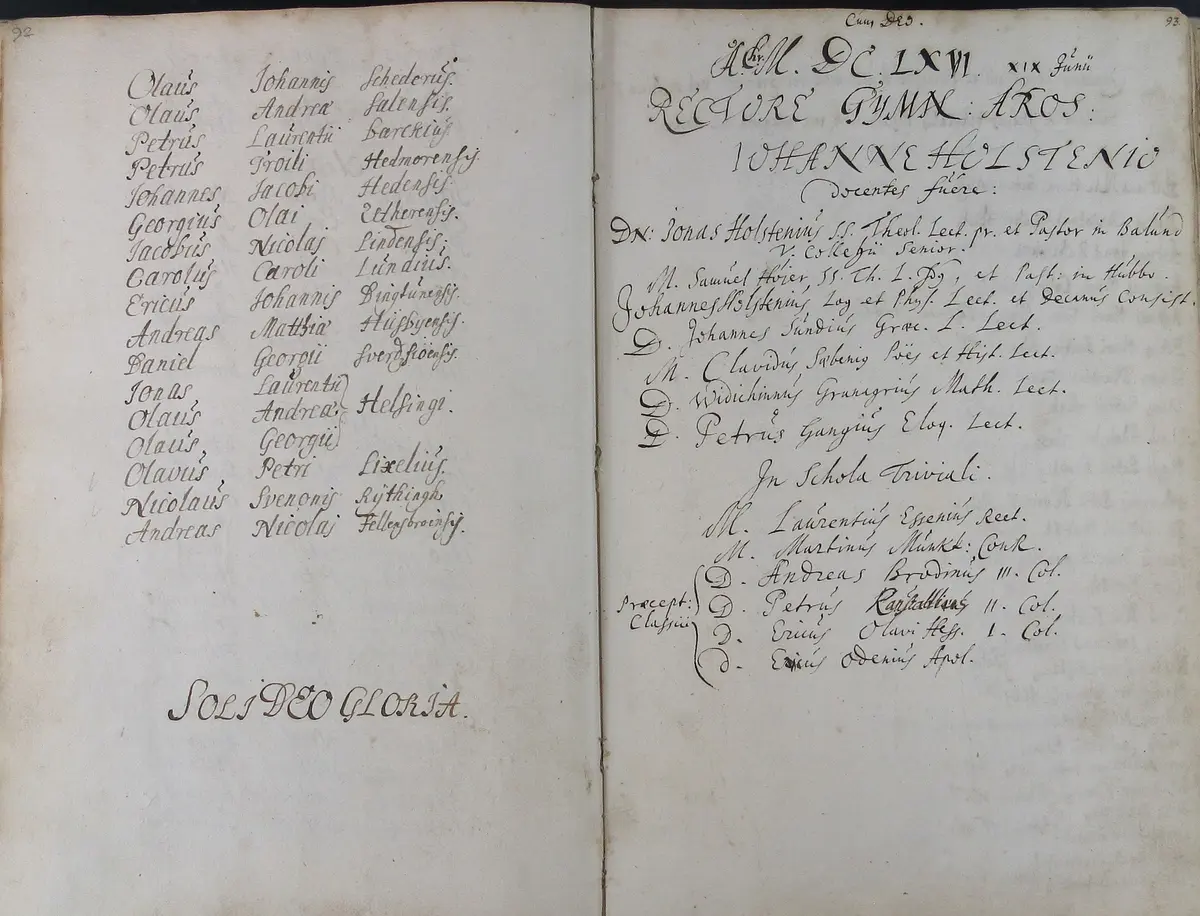 92
Olaus Johannis Schederus.
Olaus Andreæ Salensis.
Petrus Laurentii Barckius
Petrus Troili Hedmorensis.
Johannes Jacobi Hedensis.
Georgius Olai Ectherensis.
Jacobus Nicolai Lindensis.
Carolus Caroli Lundius.
Ericus Johannis Dingtunensis.
Andreas Matthiæ Husbyensis.
Daniel Georgii Sverdsiöensis.
Jonas Laurentii
Olaus Andreæ Helsingi.
Olaus Georgii
Olavus Petri Lixelius.
Nicolaus Svenonis Rythingh
Andreas Nicolai Fellensbroensis.
SOLI DEO GLORIA.
Cum Deo.
93
M. DC. LXVI. XIX Junii
RECTORE GYMN: AROS:
IOHANNE HOLSTENIO
docentes fuere:
Dn: Jonas Holstenius SS. Theol. Lect. pr. et Pastor in Balund
V. Collegii Senior.
M. Samuel Höier, SS. Th. L. et Past: in Hubbo.
Johannes Holstenius, Log et Phys. Lect. et Decanus Consist.
D. Johannes Sundius Græc. L. Lect.
M. Clavidus Poës et Hist. Lect.
D. Widichinnus Math. Lect.
D. Petrus Gangius Eloq. Lect.
In Schola Triviali.
M. Laurentius Essenius Rect.
M. Martinus Munkt: ConR.
D. Andreas Brodinus III. Col.
Præcept: D. Petrus II. Col.
Classici D. Ericus Olavi Hess. I. Col.
D. Ericus Odenius Apol.